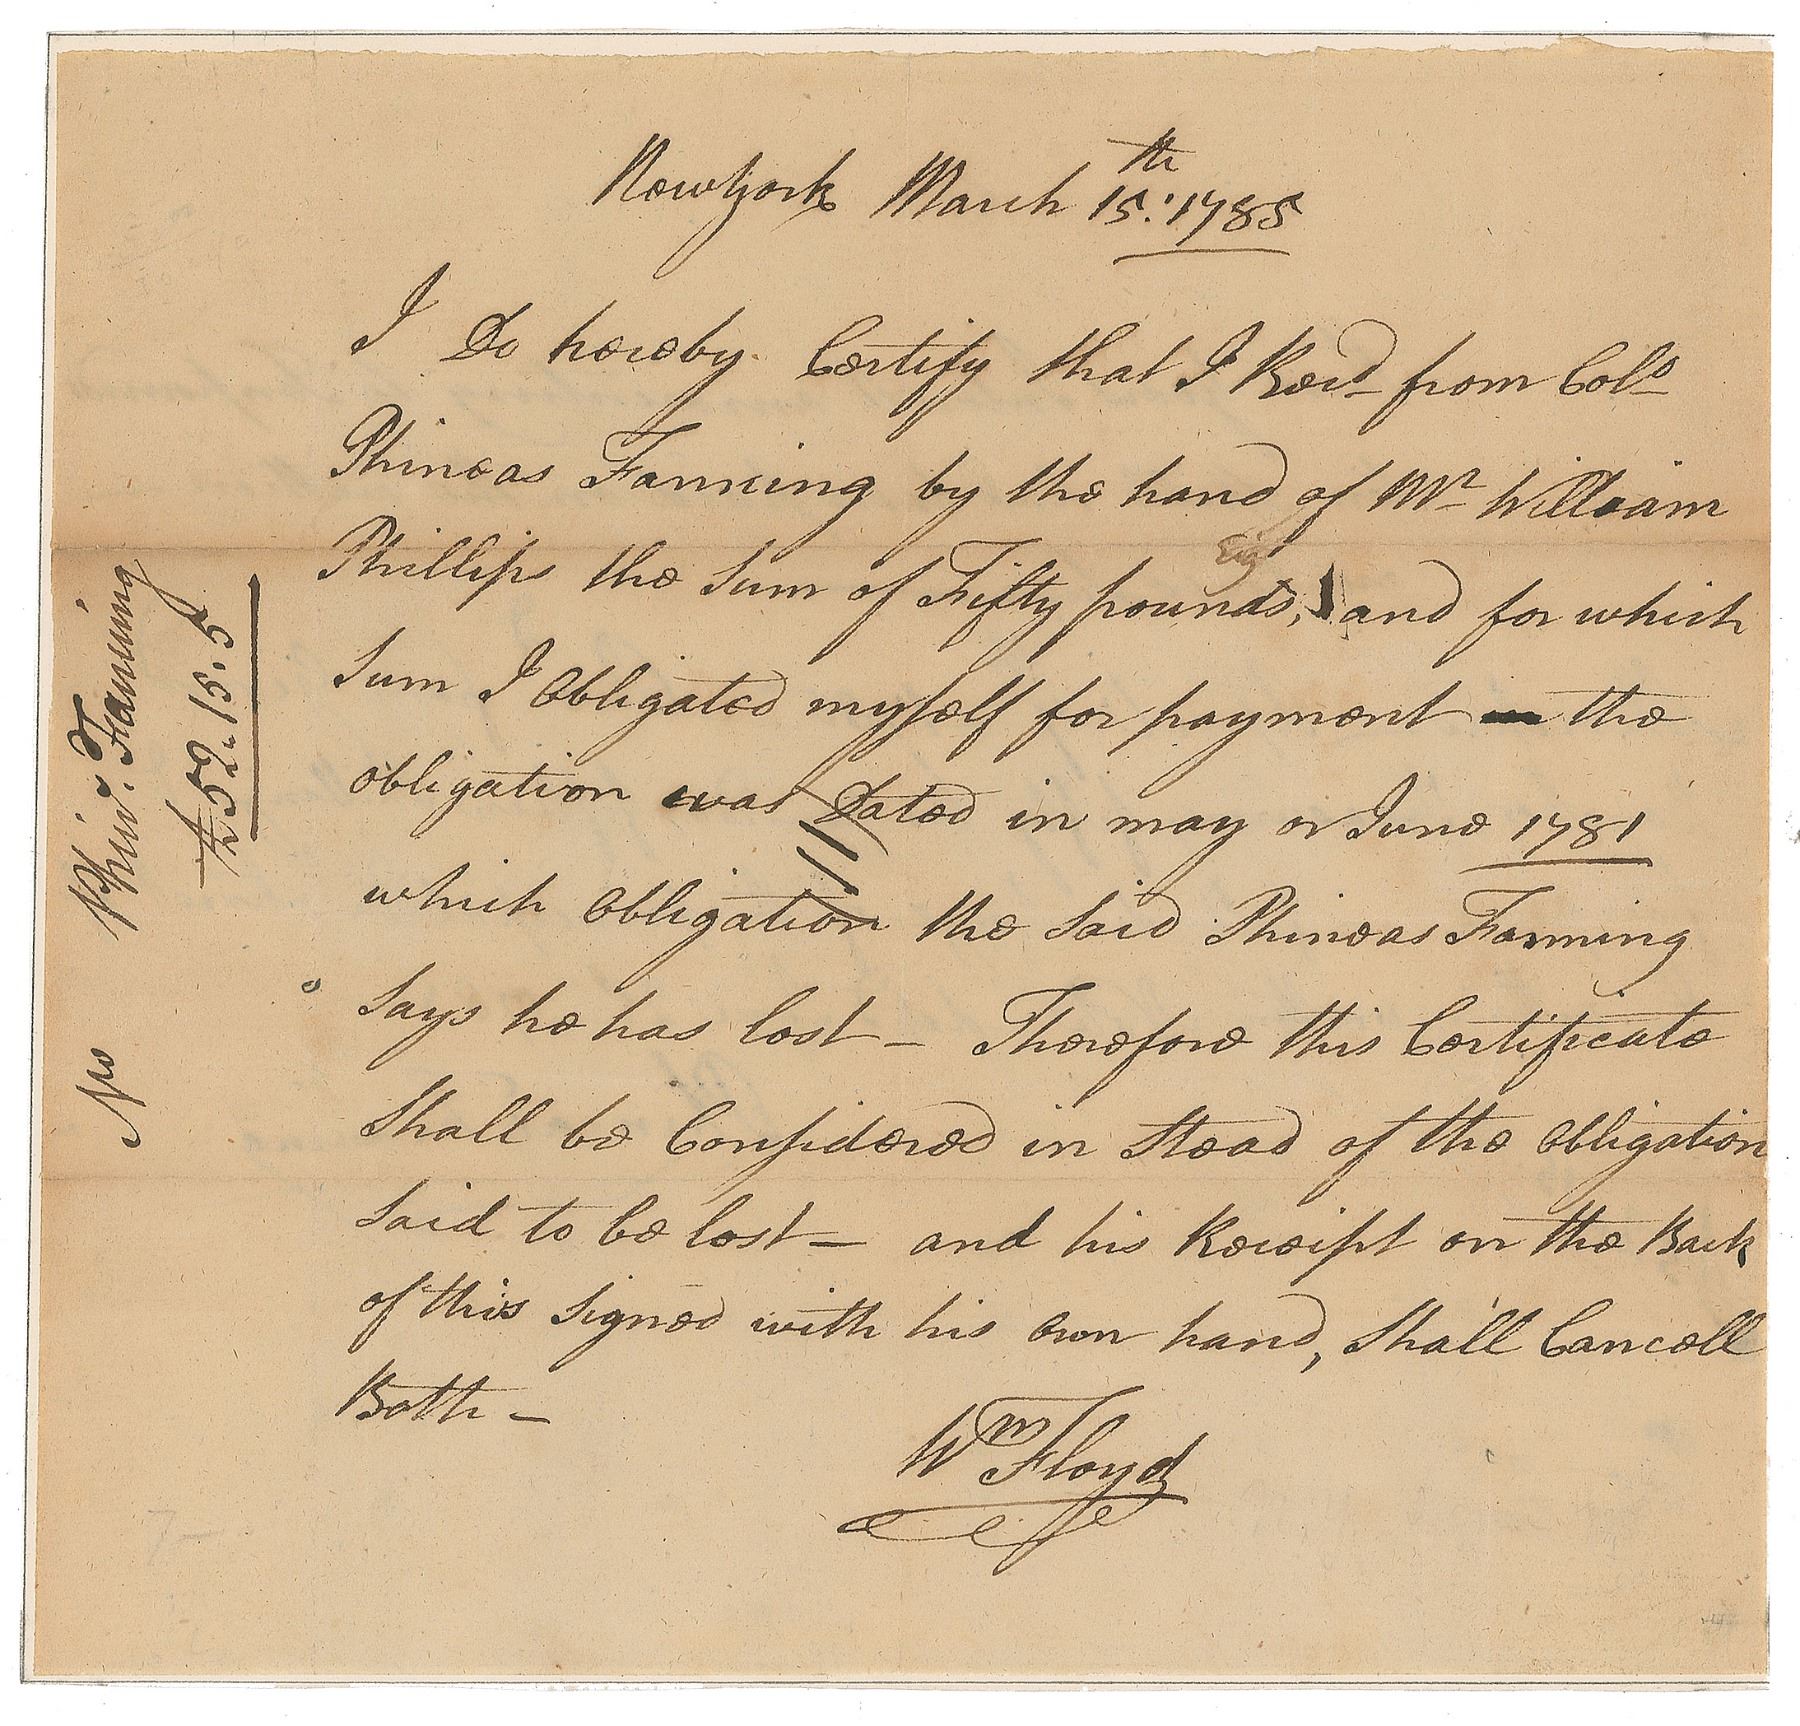 Newyork March 15th: 1785
I Do hereby Certify that I Recd from Colo
Phineas Fanning by the hand of Mr William
Phillips the Sum of Fifty pounds, and for which
Sum I obligated myself for payment the
obligation was Dated in may or June 1781
which obligation the Said Phineas Fanning
Says he has lost – Therefore this Certificate
Shall be Considered in Stead of the obligation
Said to be lost – and his Receipt on the Back
of this Signed with his own hand, Shall Cancell
Both –
Wm Floyd
Phins. Fanning
£52.15.5